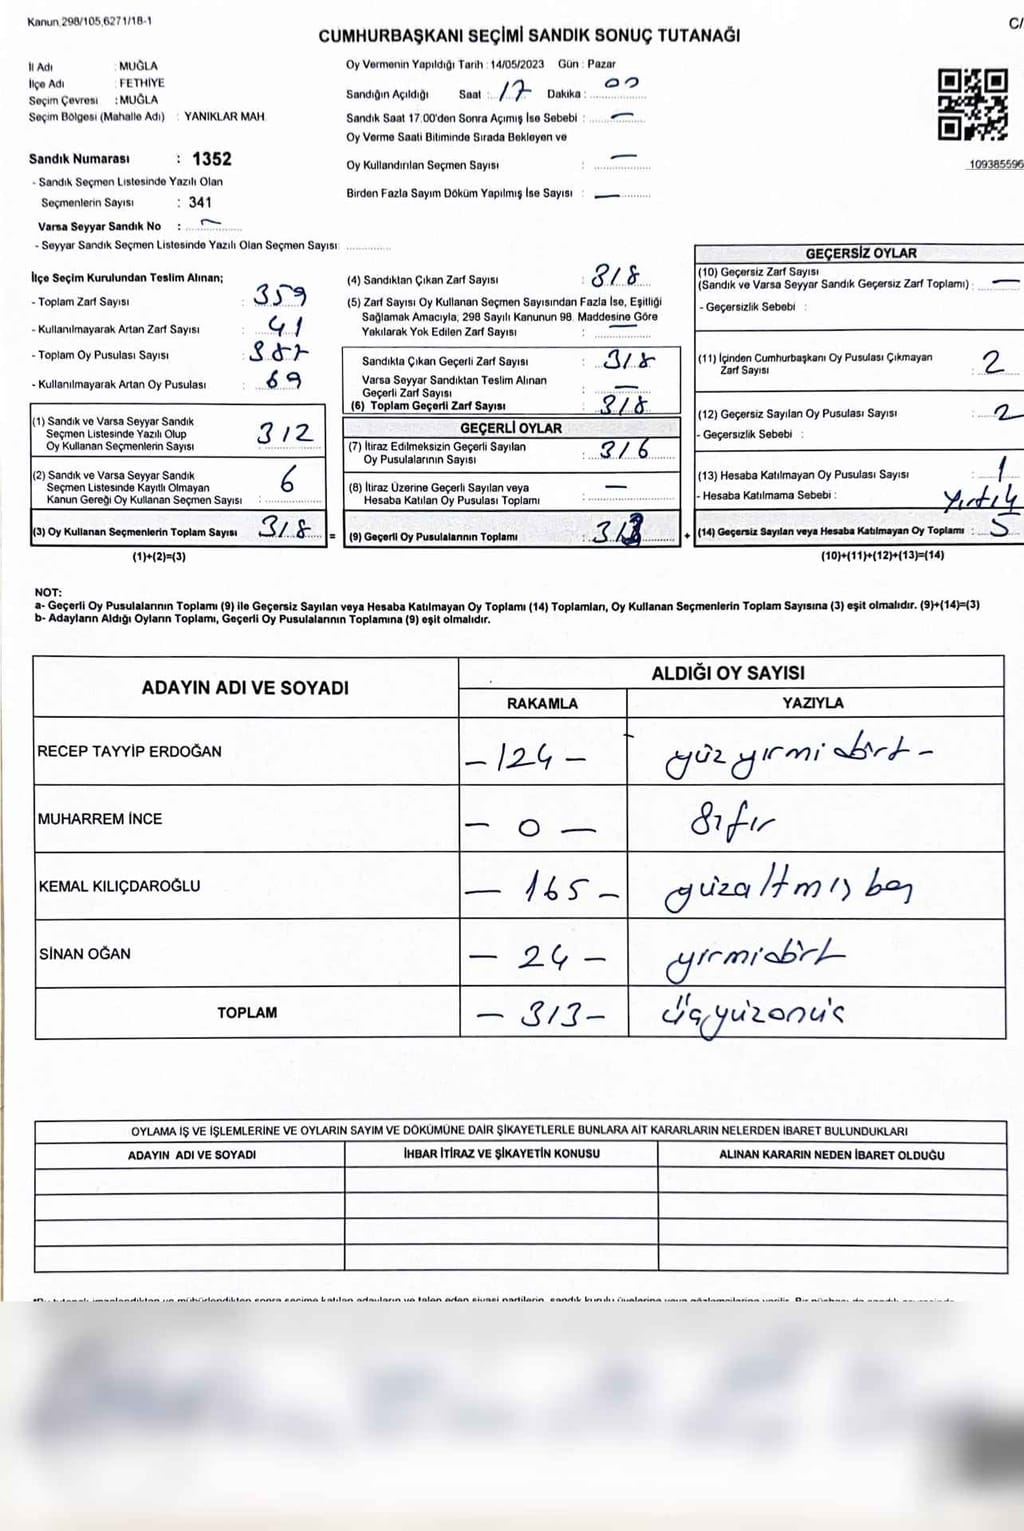 Kanun 298/105,6271/18-1
C/
CUMHURBAŞKANI SEÇİMİ SANDIK SONUÇ TUTANAĞI
İl Adı : MUĞLA
İlçe Adı : FETHİYE
Seçim Çevresi : MUĞLA
Seçim Bölgesi (Mahalle Adı) : YANIKLAR MAH.
Sandık Numarası : 1352
- Sandık Seçmen Listesinde Yazılı Olan
Seçmenlerin Sayısı : 341
Varsa Seyyar Sandık No : —
- Seyyar Sandık Seçmen Listesinde Yazılı Olan Seçmen Sayısı:
Oy Vermenin Yapıldığı Tarih : 14/05/2023 Gün : Pazar
Sandığın Açıldığı Saat : 17 Dakika : 00
Sandık Saat 17.00'den Sonra Açımış İse Sebebi : —
Oy Verme Saati Bitiminde Sırada Bekleyen ve
Oy Kullandırılan Seçmen Sayısı : —
Birden Fazla Sayım Döküm Yapılmış İse Sayısı : —
109385596
İlçe Seçim Kurulundan Teslim Alınan;
- Toplam Zarf Sayısı : 359
- Kullanılmayarak Artan Zarf Sayısı : 41
- Toplam Oy Pusulası Sayısı : 387
- Kullanılmayarak Artan Oy Pusulası : 69
(1) Sandık ve Varsa Seyyar Sandık
Seçmen Listesinde Yazılı Olup
Oy Kullanan Seçmenlerin Sayısı 312
(2) Sandık ve Varsa Seyyar Sandık
Seçmen Listesinde Kayıtlı Olmayan
Kanun Gereği Oy Kullanan Seçmen Sayısı : 6
(3) Oy Kullanan Seçmenlerin Toplam Sayısı 318 =
(1)+(2)=(3)
(4) Sandıktan Çıkan Zarf Sayısı : 318
(5) Zarf Sayısı Oy Kullanan Seçmen Sayısından Fazla İse, Eşitliği
Sağlamak Amacıyla, 298 Sayılı Kanunun 98. Maddesine Göre
Yakılarak Yok Edilen Zarf Sayısı : —
Sandıkta Çıkan Geçerli Zarf Sayısı : 318
Varsa Seyyar Sandıktan Teslim Alınan
Geçerli Zarf Sayısı : —
(6) Toplam Geçerli Zarf Sayısı : 318
GEÇERLİ OYLAR
(7) İtiraz Edilmeksizin Geçerli Sayılan
Oy Pusulalarının Sayısı : 316
(8) İtiraz Üzerine Geçerli Sayılan veya
Hesaba Katılan Oy Pusulası Toplamı : —
(9) Geçerli Oy Pusulalarının Toplamı : 313 +
GEÇERSİZ OYLAR
(10) Geçersiz Zarf Sayısı
(Sandık ve Varsa Seyyar Sandık Geçersiz Zarf Toplamı) : —
- Geçersizlik Sebebi :
(11) İçinden Cumhurbaşkanı Oy Pusulası Çıkmayan
Zarf Sayısı : 2
(12) Geçersiz Sayılan Oy Pusulası Sayısı : 2
- Geçersizlik Sebebi :
(13) Hesaba Katılmayan Oy Pusulası Sayısı : 1
- Hesaba Katılmama Sebebi : Yırtık
(14) Geçersiz Sayılan veya Hesaba Katılmayan Oy Toplamı : 5
(10)+(11)+(12)+(13)=(14)
NOT:
a- Geçerli Oy Pusulalarının Toplamı (9) ile Geçersiz Sayılan veya Hesaba Katılmayan Oy Toplamı (14) Toplamları, Oy Kullanan Seçmenlerin Toplam Sayısına (3) eşit olmalıdır. (9)+(14)=(3)
b- Adayların Aldığı Oyların Toplamı, Geçerli Oy Pusulalarının Toplamına (9) eşit olmalıdır.
ADAYIN ADI VE SOYADI
ALDIĞI OY SAYISI
RAKAMLA YAZIYLA
RECEP TAYYİP ERDOĞAN -124- yüzyirmi dört -
MUHARREM İNCE - 0 - Sıfır
KEMAL KILIÇDAROĞLU - 165 - yüzaltmış beş
SİNAN OĞAN - 24 - yirmidört
TOPLAM - 313 - Üçyüzonüç
OYLAMA İŞ VE İŞLEMLERİNE VE OYLARIN SAYIM VE DÖKÜMÜNE DAİR ŞİKAYETLERLE BUNLARA AİT KARARLARIN NELERDEN İBARET BULUNDUKLARI
ADAYIN ADI VE SOYADI İHBAR İTİRAZ VE ŞİKAYETİN KONUSU ALINAN KARARIN NEDEN İBARET OLDUĞU